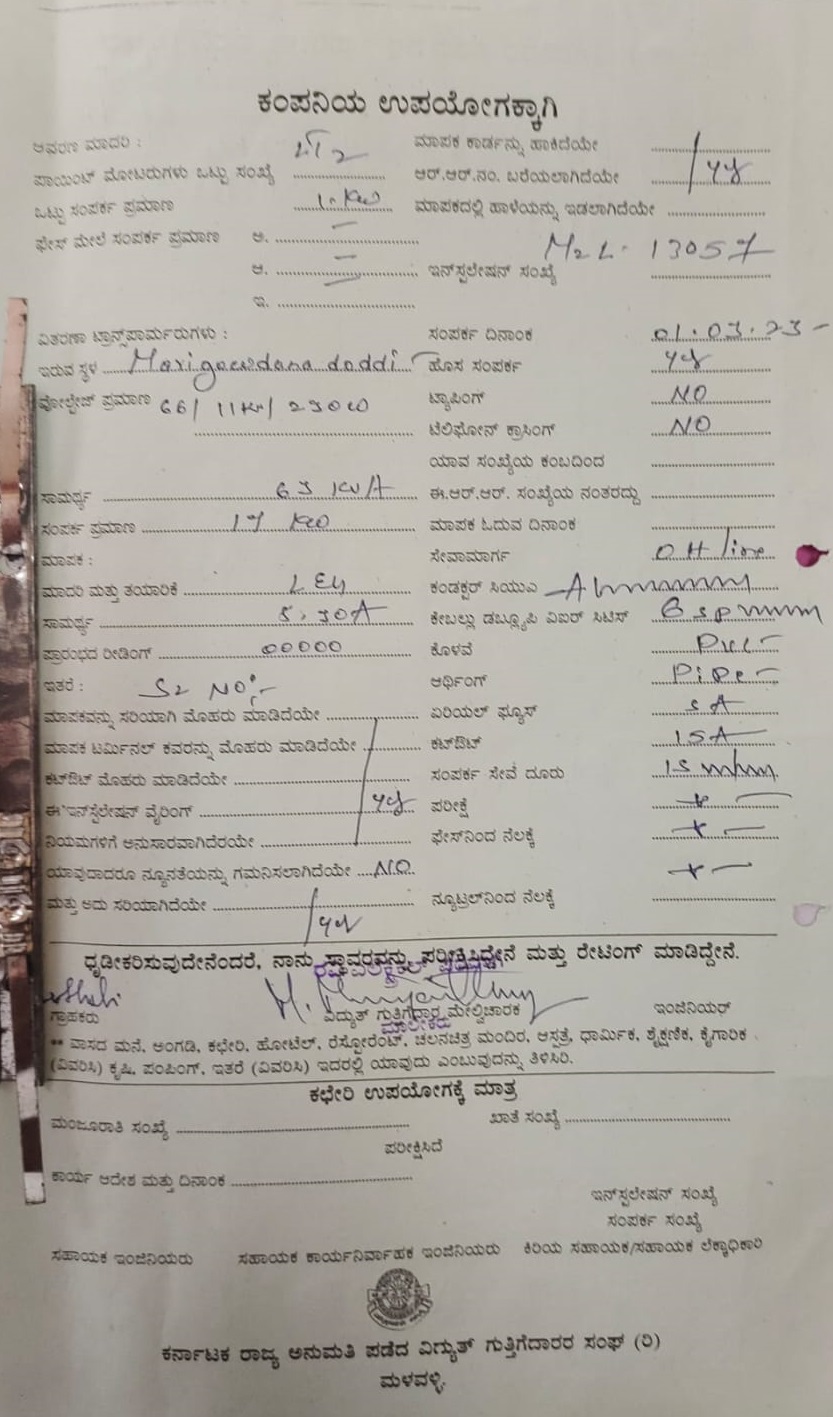 ಕಂಪನಿಯ ಉಪಯೋಗಕ್ಕಾಗಿ
ಆವರಣ ಮಾದರಿ : LT2 ಮಾಪಕ ಕಾರ್ಡನ್ನು ಹಾಕಿದೆಯೇ
ಪಾಯಿಂಟ್ ಮೋಟರುಗಳು ಒಟ್ಟು ಸಂಖ್ಯೆ ಆರ್.ಆರ್.ನಂ. ಬರೆಯಲಾಗಿದೆಯೇ
ಒಟ್ಟು ಸಂಪರ್ಕ ಪ್ರಮಾಣ ಮಾಪಕದಲ್ಲಿ ಹಾಳೆಯನ್ನು ಇಡಲಾಗಿದೆಯೇ
ಫೇಸ್ ಮೇಲೆ ಸಂಪರ್ಕ ಪ್ರಮಾಣ ಅ. M2L- 13057
ಆ. ಇನ್‌ಸ್ಟಲೇಷನ್ ಸಂಖ್ಯೆ
ಇ.
ವಿತರಣಾ ಟ್ರಾನ್ಸ್‌ಪಾರ್ಮರುಗಳು : ಸಂಪರ್ಕ ದಿನಾಂಕ 01.03.23
ಇರುವ ಸ್ಥಳ Marigowdana doddi ಹೊಸ ಸಂಪರ್ಕ
ವೋಲ್ಟೇಜ್ ಪ್ರಮಾಣ 66/11KV/ ಟ್ಯಾಪಿಂಗ್ NO
ಟೆಲಿಫೋನ್ ಕ್ರಾಸಿಂಗ್ NO
ಯಾವ ಸಂಖ್ಯೆಯ ಕಂಬದಿಂದ
ಸಾಮರ್ಥ್ಯ 63 KVA ಈ.ಆರ್.ಆರ್. ಸಂಖ್ಯೆಯ ನಂತರದ್ದು
ಸಂಪರ್ಕ ಪ್ರಮಾಣ ಮಾಪಕ ಓದುವ ದಿನಾಂಕ
ಮಾಪಕ : ಸೇವಾಮಾರ್ಗ OH line
ಮಾದರಿ ಮತ್ತು ತಯಾರಿಕೆ ಕಂಡಕ್ಟರ್ ಸಿಯುಎ
ಸಾಮರ್ಥ್ಯ 5-30A ಕೇಬಲ್ಲು ಡಬ್ಲ್ಯೂಪಿ ವಿಐರ್ ಸಿಟಿಸ್
ಪ್ರಾರಂಭದ ರೀಡಿಂಗ್ 00000 ಕೊಳವೆ PVC
ಇತರೆ : Sl NO:- ಆರ್ಥಿಂಗ್ Pipe
ಮಾಪಕವನ್ನು ಸರಿಯಾಗಿ ಮೊಹರು ಮಾಡಿದೆಯೇ ಏರಿಯಲ್ ಫ್ಯೂಸ್ 5A
ಮಾಪಕ ಟರ್ಮಿನಲ್ ಕವರನ್ನು ಮೊಹರು ಮಾಡಿದೆಯೇ ಕಟ್‌ಔಟ್ 15A
ಕಟ್‌ಔಟ್ ಮೊಹರು ಮಾಡಿದೆಯೇ ಸಂಪರ್ಕ ಸೇವೆ ದೂರು
ಈ ಇನ್‌ಸ್ಟೆಲೇಷನ್ ವೈರಿಂಗ್ ಪರೀಕ್ಷೆ
ನಿಯಮಗಳಿಗೆ ಅನುಸಾರವಾಗಿದೆರಯೇ ಫೇಸ್‌ನಿಂದ ನೆಲಕ್ಕೆ
ಯಾವುದಾದರೂ ನ್ಯೂನತೆಯನ್ನು ಗಮನಿಸಲಾಗಿದೆಯೇ NO
ಮತ್ತು ಅದು ಸರಿಯಾಗಿದೆಯೇ ನ್ಯೂಟ್ರಲ್‌ನಿಂದ ನೆಲಕ್ಕೆ
ಧೃಡೀಕರಿಸುವುದೇನೆಂದರೆ, ನಾನು ಸ್ಥಾವರವನ್ನು ಪರೀಕ್ಷಿಸಿದ್ದೇನೆ ಮತ್ತು ರೇಟಿಂಗ್ ಮಾಡಿದ್ದೇನೆ.
ಗ್ರಾಹಕರು ವಿದ್ಯುತ್ ಗುತ್ತಿಗೆದಾರ ಮೇಲ್ವಿಚಾರಕ ಇಂಜಿನಿಯರ್
ಮಾಲೀಕರು
** ವಾಸದ ಮನೆ, ಅಂಗಡಿ, ಕಛೇರಿ, ಹೋಟೆಲ್, ರೆಸ್ಟೋರೆಂಟ್, ಚಲನಚಿತ್ರ ಮಂದಿರ, ಆಸ್ಪತ್ರೆ, ಧಾರ್ಮಿಕ, ಶೈಕ್ಷಣಿಕ, ಕೈಗಾರಿಕ
(ವಿವರಿಸಿ) ಕೃಷಿ, ಪಂಪಿಂಗ್, ಇತರೆ (ವಿವರಿಸಿ) ಇದರಲ್ಲಿ ಯಾವುದು ಎಂಬುವುದನ್ನು ತಿಳಿಸಿರಿ.
ಕಛೇರಿ ಉಪಯೋಗಕ್ಕೆ ಮಾತ್ರ
ಮಂಜೂರಾತಿ ಸಂಖ್ಯೆ ಖಾತೆ ಸಂಖ್ಯೆ
ಪರೀಕ್ಷಿಸಿದೆ
ಕಾರ್ಯ ಆದೇಶ ಮತ್ತು ದಿನಾಂಕ
ಇನ್‌ಸ್ಟಲೇಷನ್ ಸಂಖ್ಯೆ
ಸಂಪರ್ಕ ಸಂಖ್ಯೆ
ಸಹಾಯಕ ಇಂಜಿನಿಯರು ಸಹಾಯಕ ಕಾರ್ಯನಿರ್ವಾಹಕ ಇಂಜಿನಿಯರು ಕಿರಿಯ ಸಹಾಯಕ/ಸಹಾಯಕ ಲೆಕ್ಕಾಧಿಕಾರಿ
ಕರ್ನಾಟಕ ರಾಜ್ಯ ಅನುಮತಿ ಪಡೆದ ವಿದ್ಯುತ್ ಗುತ್ತಿಗೆದಾರರ ಸಂಘ (ರಿ)
ಮಳವಳ್ಳಿ.